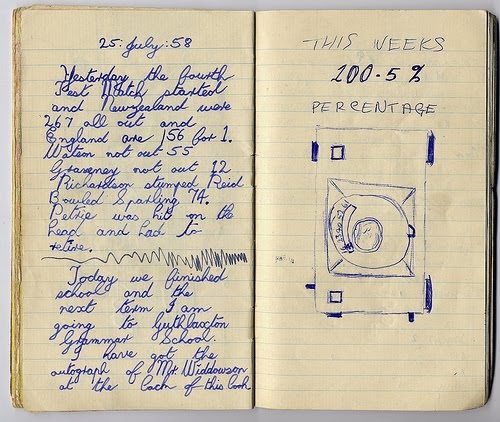 25: July: 58
Yesterday the fourth
Test Match started
and Newzealand were
267 all out and
England are 156 for 1.
Watson not out 55
Graveney not out 12
Richardson stumped Reid
Bowled Sparling 74.
Petrie was hit on the
head and had to
retire.
Today we finished
school and the
next term I am
going to Guthlaxton
Grammar School.
I have got the
autograph of Mr. Widdowson
at the back of this book
THIS WEEKS
100.5 %
PERCENTAGE